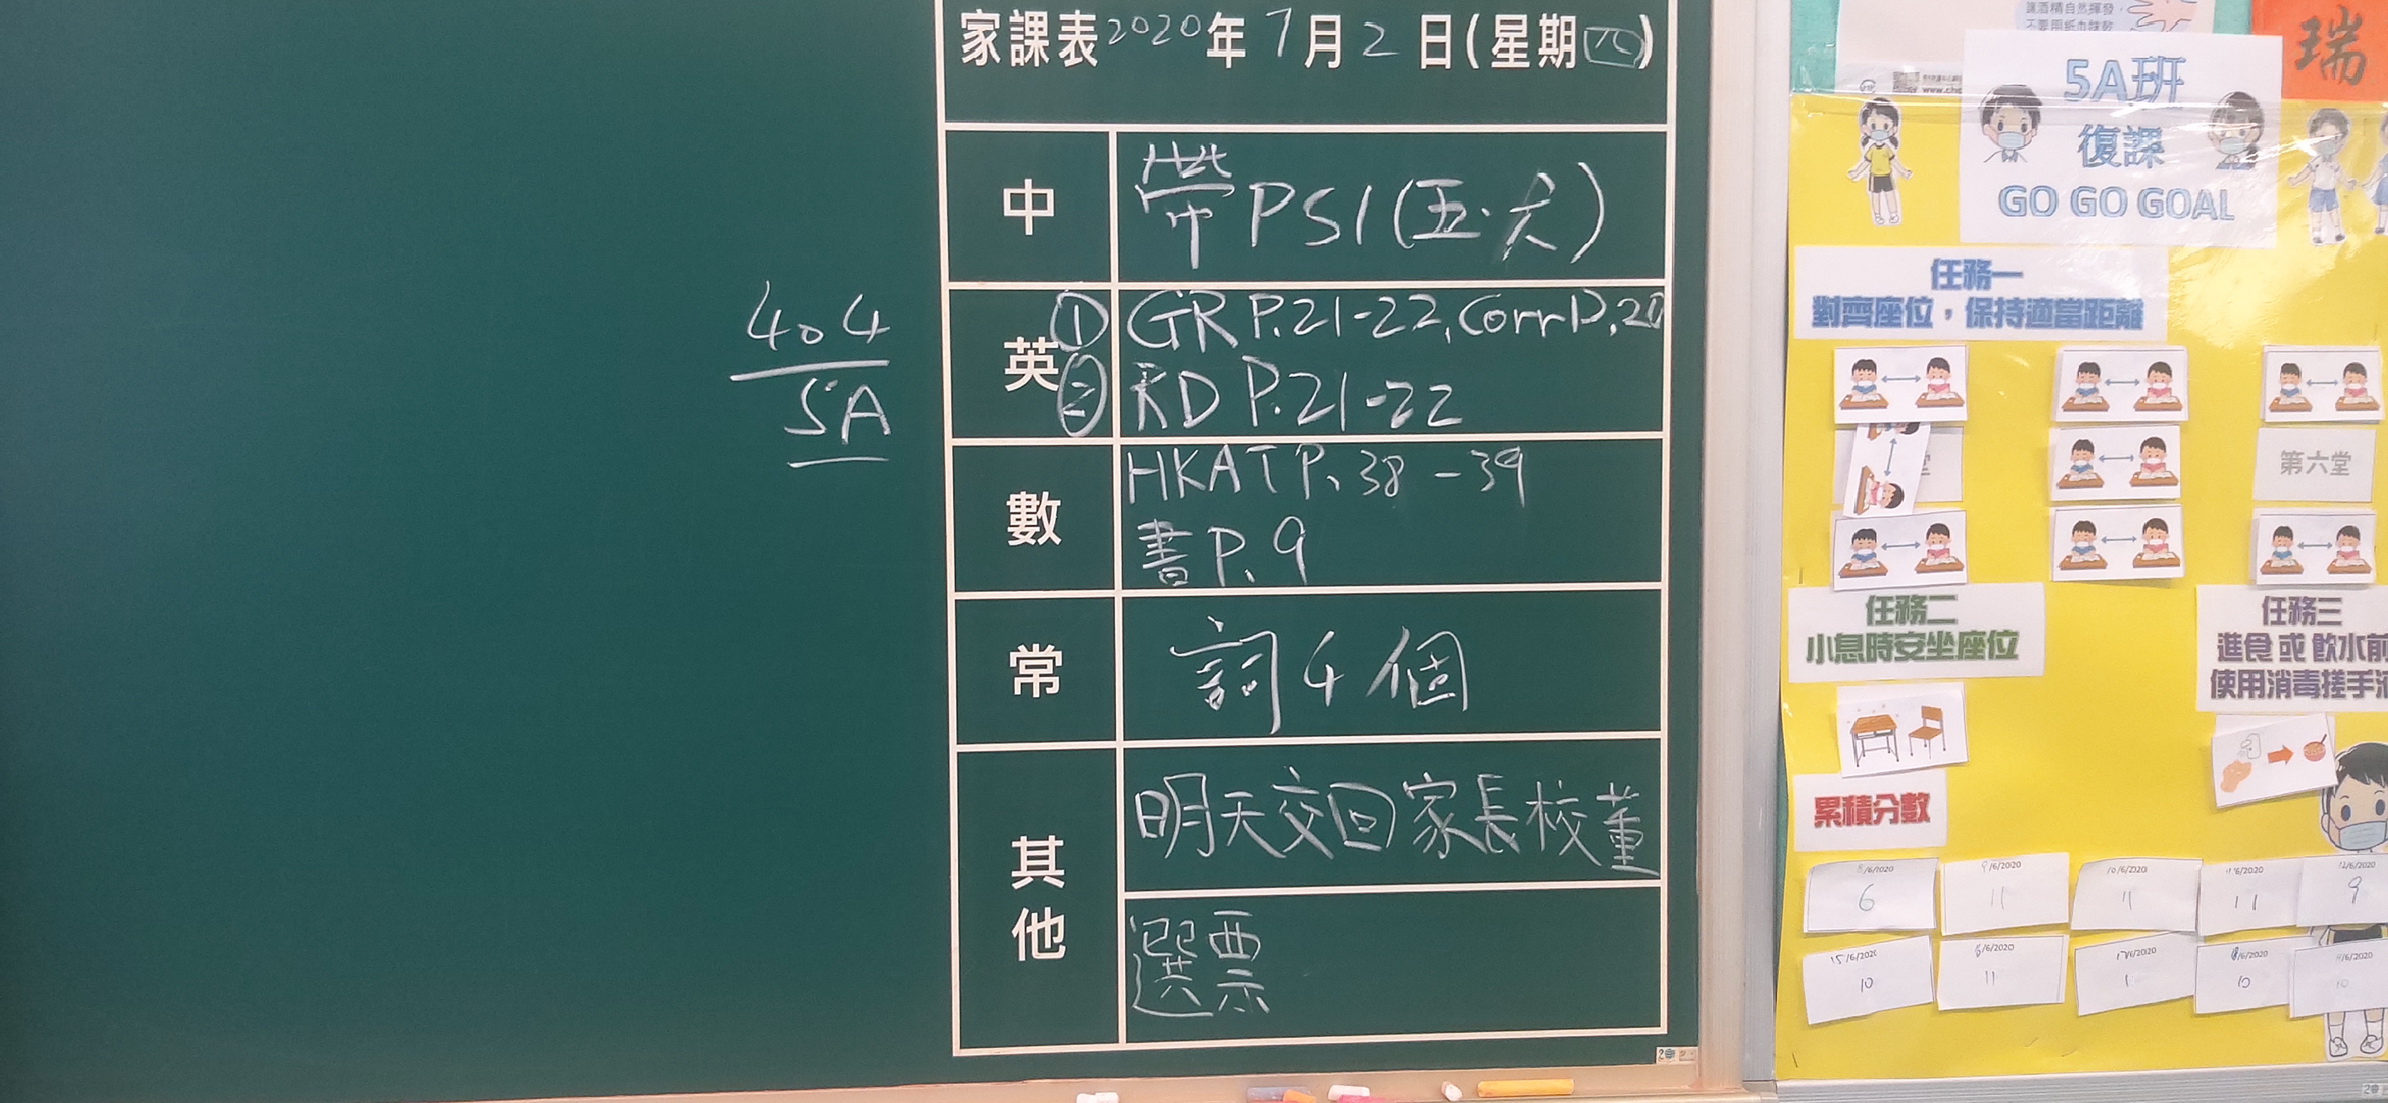 家課表2020年7月2日(星期四)
中
帶PS1(五.犬)
英
①GR P.21-22, Corr P.20
② RD P.21-22
數
HKAT P. 38-39
書P.9
常
詞4個
其他
明天交回家長校董
選票
404
5A
瑞
5A班
復課
GO GO GOAL
任務一
對齊座位，保持適當距離
第六堂
任務二
小息時安坐座位
任務三
進食或飲水前
使用消毒搓手液
累積分數
6
9/6/2020
11
10/6/2020
11
11/6/2020
11
12/6/2020
9
15/6/2020
10
11
17/6/2020
1
10
10